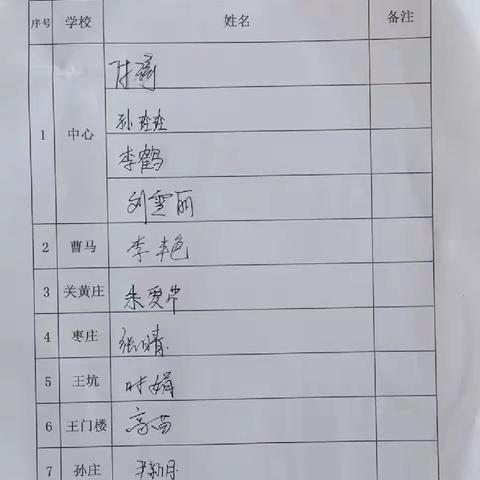 序号 学校 姓名 备注
1 中心
孙班班
李鹤
刘雪丽
2 曹马 李艳
3 关黄庄 朱爱芹
4 枣庄 张晴
5 王坑 时娟
6 王门楼 高苗
7 孙庄 尹新月